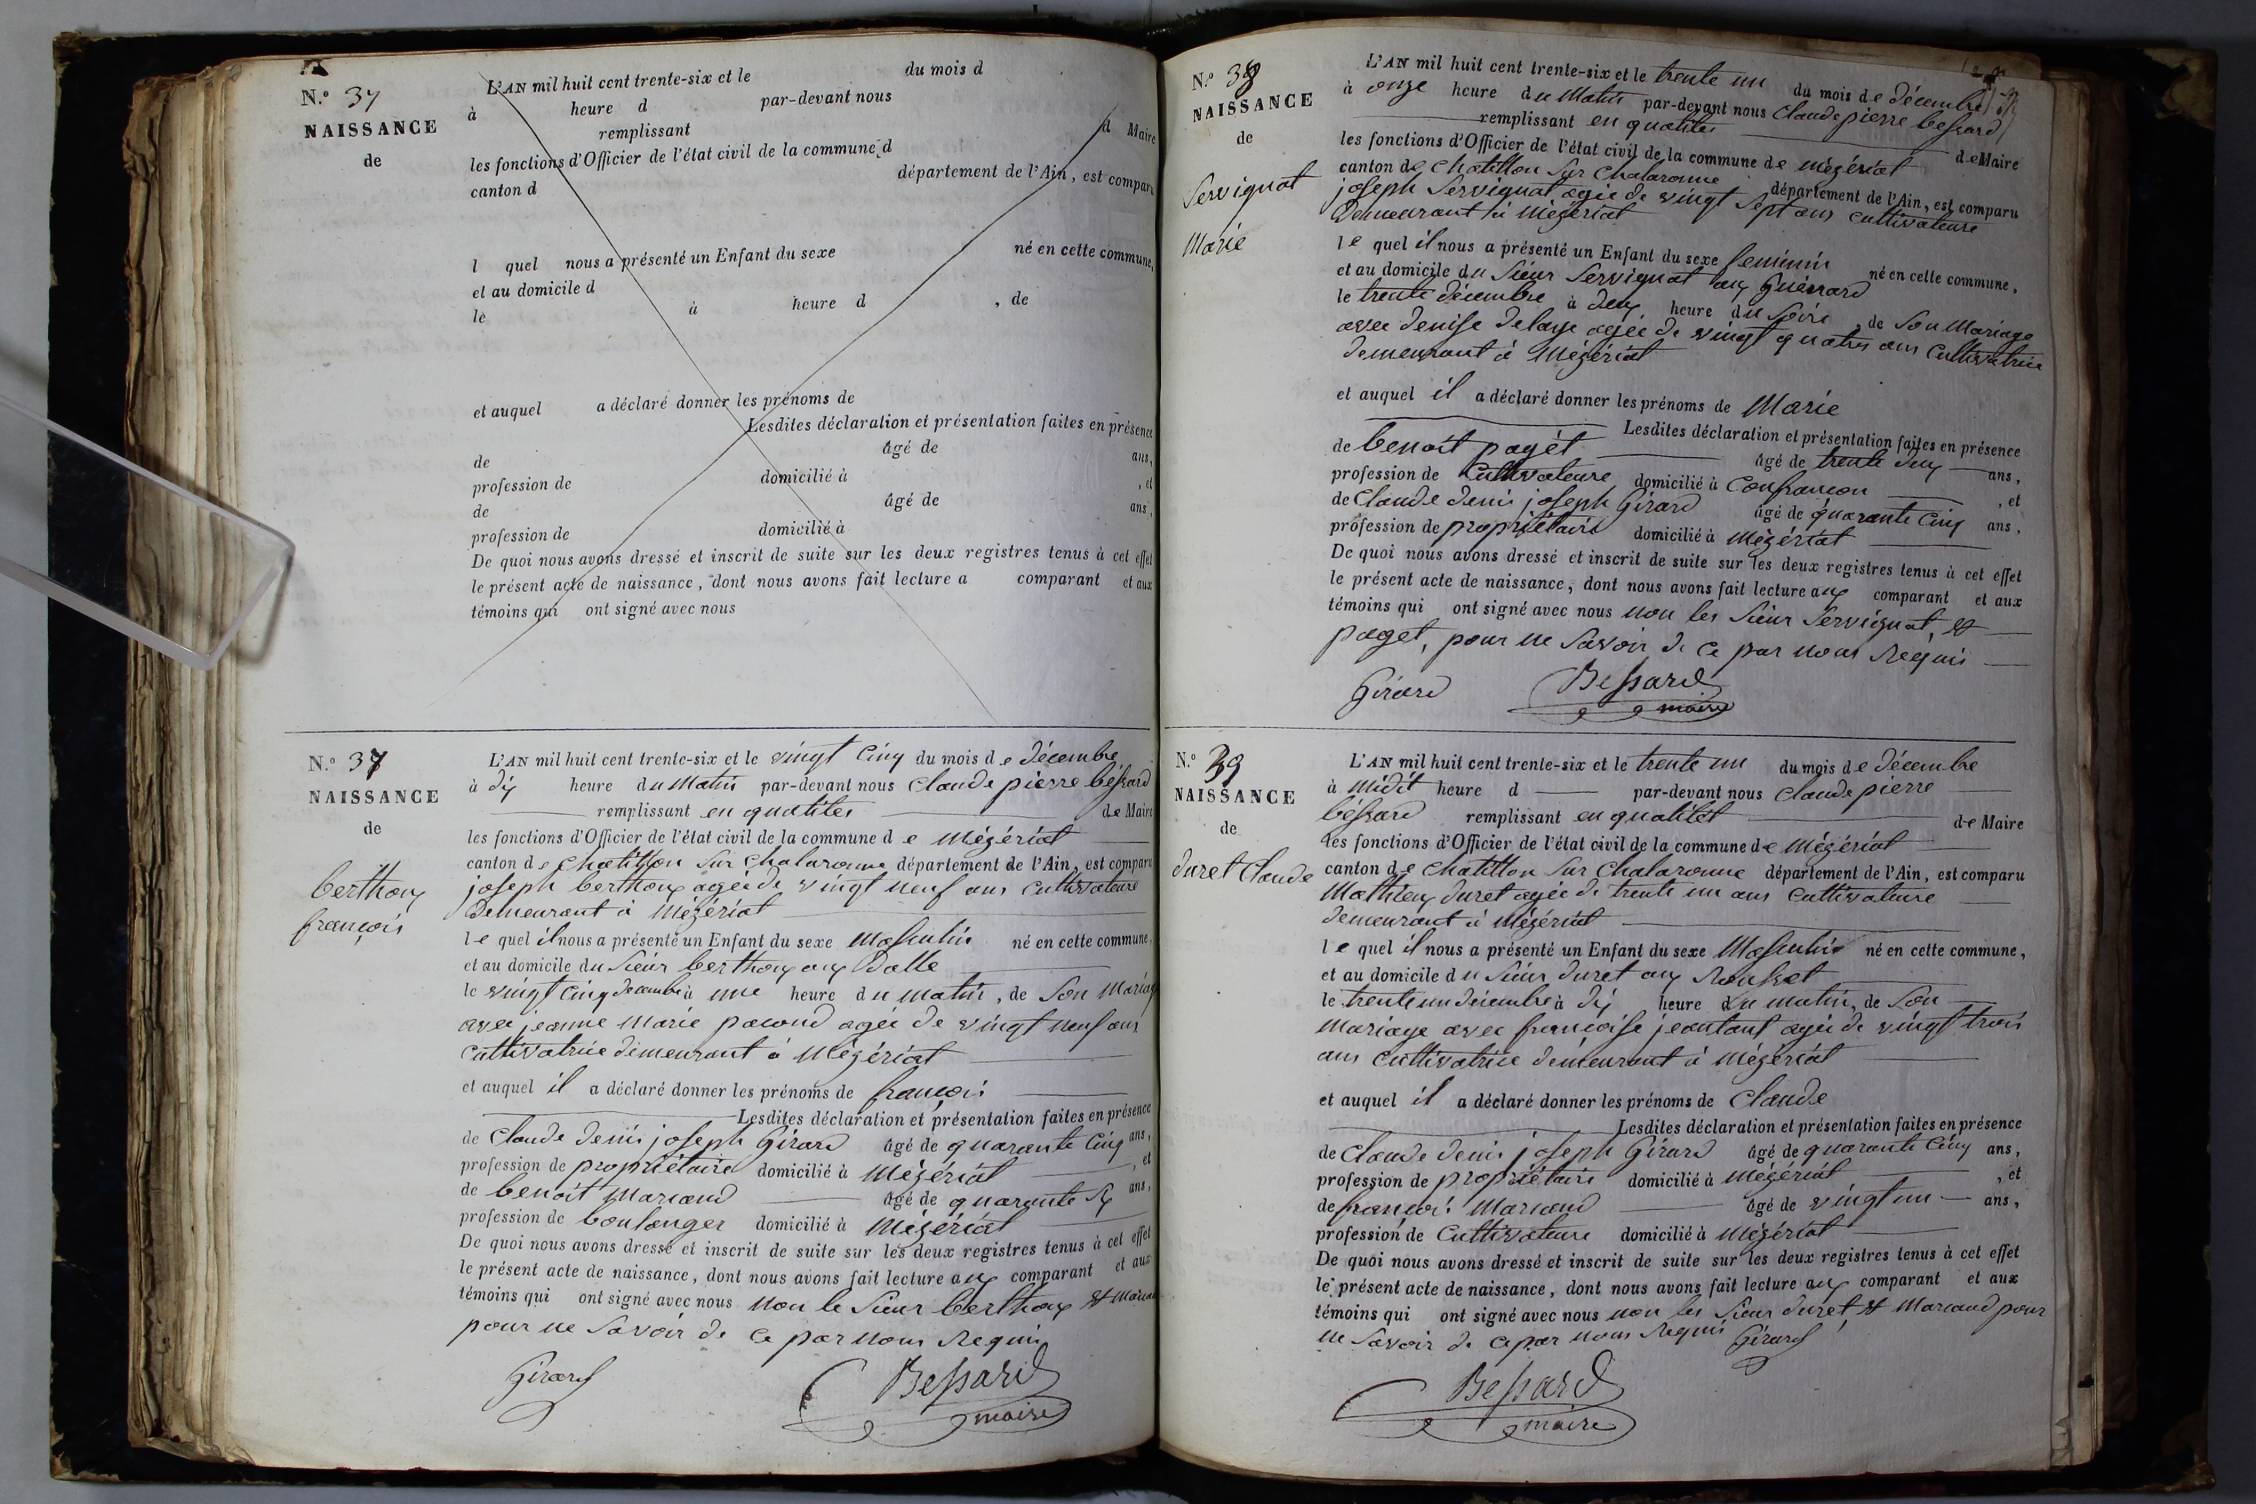 N.º 37
NAISSANCE
de
L'AN mil huit cent trente-six et le du mois d
à heure d par-devant nous
remplissant d Maire
les fonctions d'Officier de l'état civil de la commune d
canton d département de l'Ain, est comparu
l quel nous a présenté un Enfant du sexe né en cette commune,
et au domicile d
le à heure d , de
et auquel a déclaré donner les prénoms de
Lesdites déclaration et présentation faites en présence
de âgé de ans,
profession de domicilié à , et
de âgé de ans,
profession de domicilié à
De quoi nous avons dressé et inscrit de suite sur les deux registres tenus à cet effet
le présent acte de naissance, dont nous avons fait lecture a comparant et aux
témoins qui ont signé avec nous
N.º 37
NAISSANCE
de
berthoux
françois
L'AN mil huit cent trente-six et le vingt cinq du mois de décembre
à dix heure du matin par-devant nous claude pierre bessard
remplissant en qualités de Maire
les fonctions d'Officier de l'état civil de la commune de Mézériat
canton de chatillon sur chalaronne département de l'Ain, est comparu
joseph berthoux agée de vingt neuf ans cultivateure
Demeurant à Mézériat
le quel il nous a présenté un Enfant du sexe Masculin né en cette commune,
et au domicile du sieur berthoux aux Balle
le vingt cinq decembre à une heure du matin, de son Mariage
avec jeanne Marie pacoud agée de vingt neuf ans
cultivatrice demeurant à Mézériat
et auquel il a déclaré donner les prénoms de françois
Lesdites déclaration et présentation faites en présence
de claude denis joseph Girard âgé de quarante cinq ans,
profession de propriétaire domicilié à Mézériat , et
de benoit Marcand âgé de quarante six ans,
profession de boulanger domicilié à Mézériat
De quoi nous avons dressé et inscrit de suite sur les deux registres tenus à cet effet
le présent acte de naissance, dont nous avons fait lecture aux comparant et aux
témoins qui ont signé avec nous non le sieur berthoux et
pour ne savoir de ce par nous requis
Girard Bessard
maire
N.º 38
NAISSANCE
de
Servignat
Marie
L'AN mil huit cent trente-six et le trente un du mois de décembre
à onze heure du Matin par-devant nous claude pierre bessard
remplissant en qualités de Maire
les fonctions d'Officier de l'état civil de la commune de Mézériat
canton de chatillon sur chalaronne département de l'Ain, est comparu
joseph Servignat agée de vingt sept ans cultivateure
Demeurant à Mézériat
le quel il nous a présenté un Enfant du sexe feminin
et au domicile du sieur Servignat aux Guérrard né en cette commune,
le trente décembre à deux heure du soire , de son Mariage
avec denise delaye agée de vingt quatre ans cultivatrice
demeurant à Mézériat
et auquel il a déclaré donner les prénoms de Marie
Lesdites déclaration et présentation faites en présence
de benoit pagét âgé de trente deux ans,
profession de cultivateure domicilié à Confrancon , et
de claude denis joseph Girard âgé de quarante cinq ans,
profession de propriétaire domicilié à Mézériat
De quoi nous avons dressé et inscrit de suite sur les deux registres tenus à cet effet
le présent acte de naissance, dont nous avons fait lecture aux comparant et aux
témoins qui ont signé avec nous non les sieur Servignat, et
paget, pour ne savoir de ce par nous requis
Girard Bessard
maire
N.º 39
NAISSANCE
de
duret claude
L'AN mil huit cent trente-six et le trente un du mois de décembre
à midit heure d par-devant nous claude pierre
béssard remplissant en qualitét de Maire
les fonctions d'Officier de l'état civil de la commune de Mézériat
canton de chatillon sur chalaronne département de l'Ain, est comparu
Mathieu duret agée de trente un ans cultivateure
demeurant à Mézériat
le quel il nous a présenté un Enfant du sexe Masculin né en cette commune,
et au domicile du sieur duret aux Rousset
le trente un décembre à dix heure du matin, de son
mariage avec francoise jeantant agée de vingt trois
ans cultivatrice demeurant à Mézériat
et auquel il a déclaré donner les prénoms de claude
Lesdites déclaration et présentation faites en présence
de claude denis joseph Girard âgé de quarante cinq ans,
profession de propriétaire domicilié à Mézériat , et
de françois Marcand âgé de vingt un ans,
profession de cultivateure domicilié à Mézériat
De quoi nous avons dressé et inscrit de suite sur les deux registres tenus à cet effet
le présent acte de naissance, dont nous avons fait lecture aux comparant et aux
témoins qui ont signé avec nous non les sieur duret, et Marcand pour
ne savoir de ce par nous requis Girard
Bessard
maire